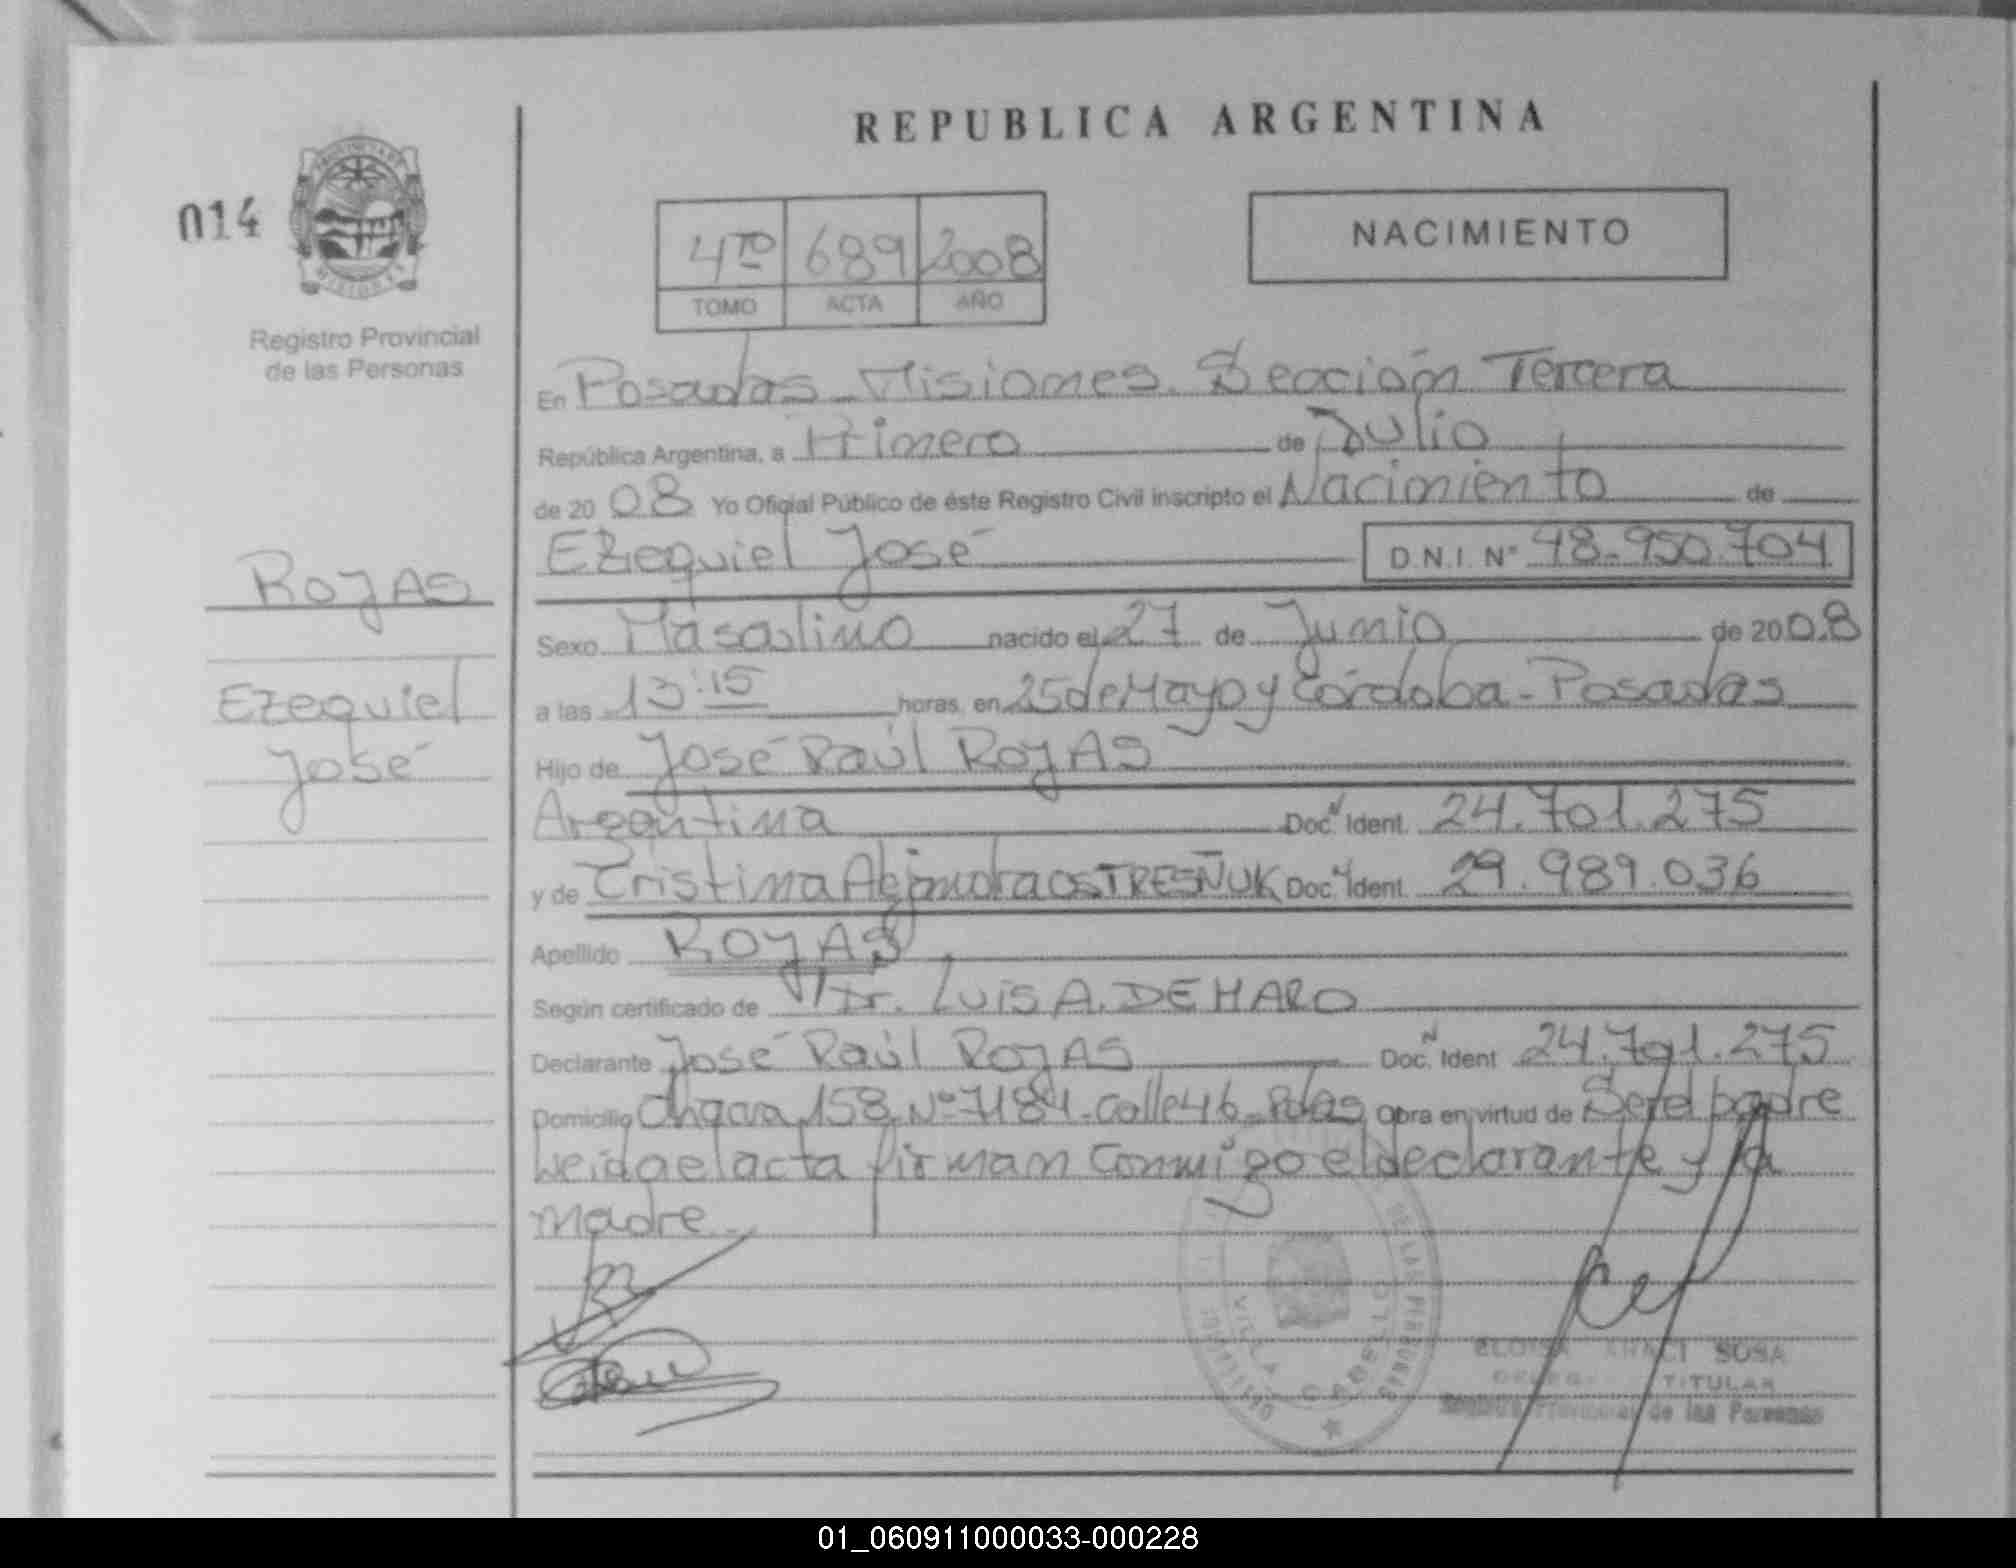 REPUBLICA ARGENTINA
014
4TO 689 2008
TOMO ACTA AÑO
NACIMIENTO
Registro Provincial
de las Personas
En Posadas - Misiones. Sección Tercera
República Argentina, a Primero de Julio
de 20 08 Yo Oficial Público de éste Registro Civil inscripto el Nacimiento de
Ezequiel José D.N.I. Nº 48.950.704
ROJAS
Sexo Masculino nacido el 27 de Junio de 20 08
Ezequiel
a las 13:15 horas, en 25 de Mayo y Córdoba - Posadas
José
Hijo de José Raúl ROJAS
Argentina Doc. Ident. 24.701.275
y de Cristina Alejandra OSTRESÑUK Doc. Ident. 29.989.036
Apellido ROJAS
Según certificado de Dr. Luis A. DE HARO
Declarante José Raúl ROJAS Doc. Ident 24.701.275
Domicilio Chacra 158 Nº 7184 - Calle 46 - Pdas Obra en virtud de Ser el padre
Leída el acta firman Conmigo el declarante y la
madre.
VILLA CABELLO
SOSA
TITULAR
Provincial de las Personas
01_060911000033-000228